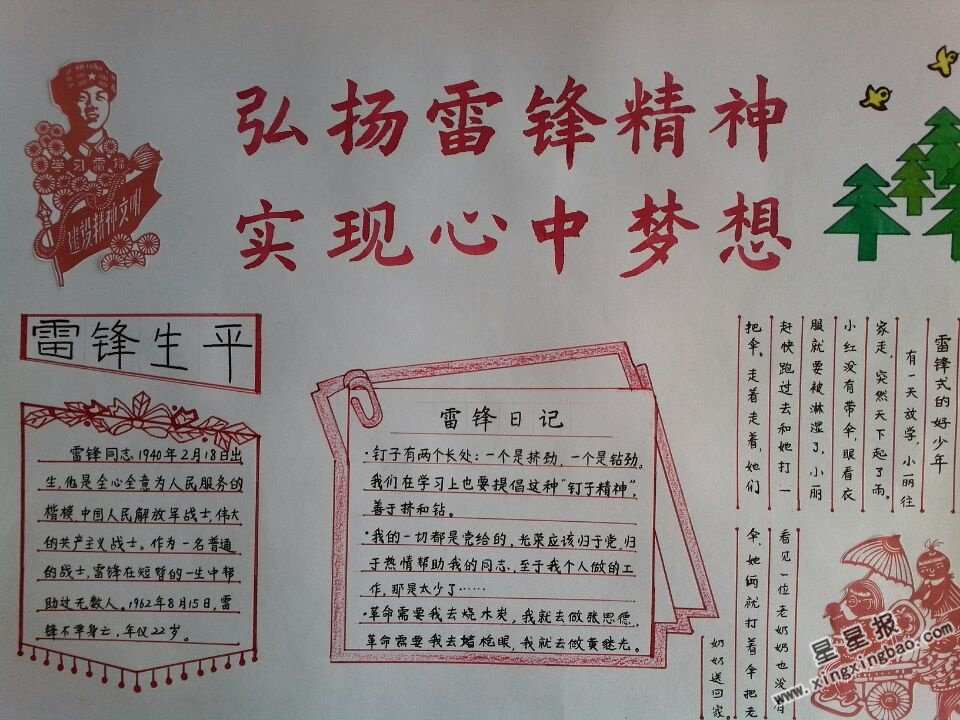 弘扬雷锋精神
实现心中梦想
学习雷锋
建设精神文明
雷锋生平
雷锋同志1940年2月18日出
生，他是全心全意为人民服务的
楷模，中国人民解放军战士，伟大
的共产主义战士。作为一名普通
的战士，雷锋在短暂的一生中帮
助过无数人。1962年8月15日，雷
锋不幸身亡，年仅22岁。
雷锋日记
·钉子有两个长处：一个是挤劲，一个是钻劲。
我们在学习上也要提倡这种“钉子精神”，
善于挤和钻。
·我的一切都是党给的，光荣应该归于党，归
于热情帮助我的同志，至于我个人做的工
作，那是太少了……
·革命需要我去烧木炭，我就去做张思德，
革命需要我去堵枪眼，我就去做黄继光。
雷锋式的好少年
有一天放学，小丽往
家走，突然天下起了雨。
小红没有带伞，眼看衣
服就要被淋湿了，小丽
赶快跑过去和她打一
把伞。走着走着，她们
看见一位老奶奶也没有
伞，她俩就打着伞把老
奶奶送回家。
星星报
www.xingxingbao.com